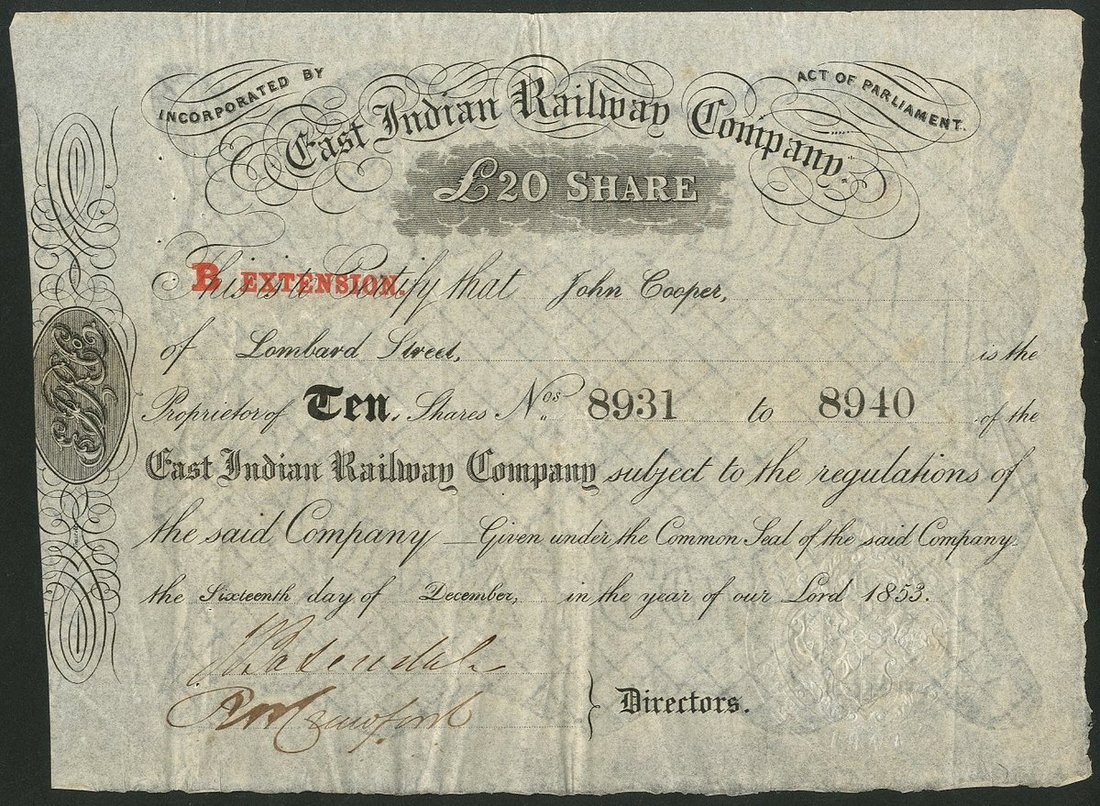 INCORPORATED BY
ACT OF PARLIAMENT.
East Indian Railway Company.
£20 SHARE
B EXTENSION.
This is to Certify that John Cooper,
of Lombard Street, is the
Proprietor of Ten, Shares Nos 8931 to 8940 of the
East Indian Railway Company subject to the regulations of
the said Company Given under the Common Seal of the said Company
the Sixteenth day of December, in the year of our Lord 1853.
RW Crawford
Directors.